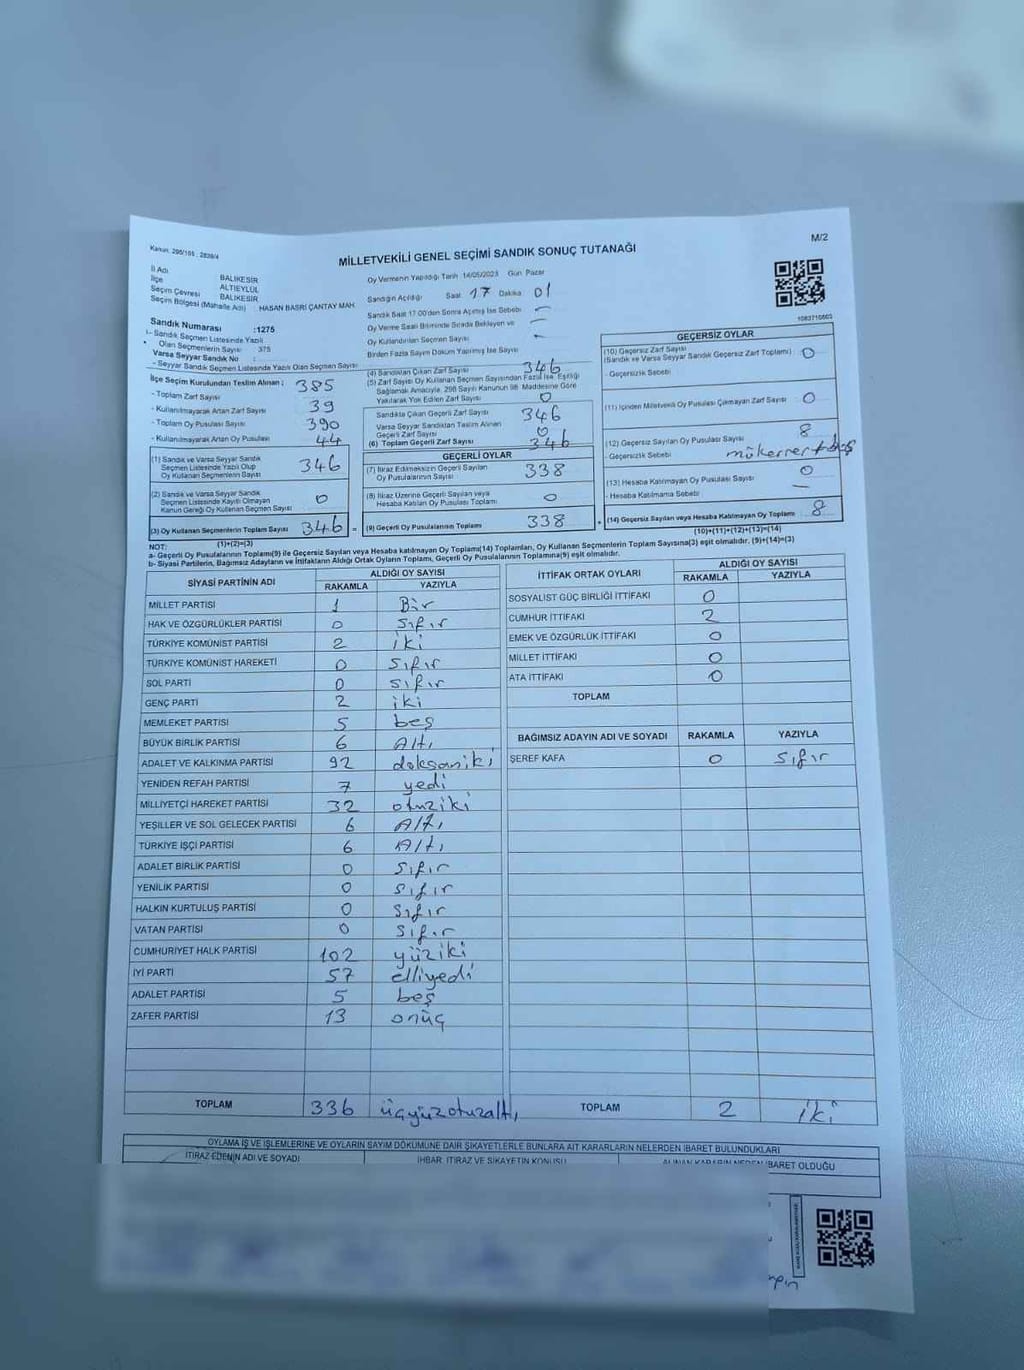 Kanun. 298/105 : 2839/4
M/2
MİLLETVEKİLİ GENEL SEÇİMİ SANDIK SONUÇ TUTANAĞI
İl Adı BALIKESİR
İlçe ALTIEYLÜL
Seçim Çevresi BALIKESİR
Seçim Bölgesi (Mahalle Adı) : HASAN BASRİ ÇANTAY MAH.
Sandık Numarası :1275
- Sandık Seçmen Listesinde Yazılı
Olan Seçmenlerin Sayısı 375
Varsa Seyyar Sandık No :
- Seyyar Sandık Seçmen Listesinde Yazılı Olan Seçmen Sayısı
Oy Vermenin Yapıldığı Tarih 14/05/2023 Gün Pazar
Sandığın Açıldığı Saat 17 Dakika 01
Sandık Saat 17:00'den Sonra Açılmış İse Sebebi —
Oy Verme Saati Bitiminde Sırada Bekleyen ve
Oy Kullandırılan Seçmen Sayısı —
Birden Fazla Sayım Döküm Yapılmış İse Sayısı —
1083710603
İlçe Seçim Kurulundan Teslim Alınan ;
- Toplam Zarf Sayısı 385
- Kullanılmayarak Artan Zarf Sayısı 39
- Toplam Oy Pusulası Sayısı 390
- Kullanılmayarak Artan Oy Pusulası 44
(1) Sandık ve Varsa Seyyar Sandık
Seçmen Listesinde Yazılı Olup
Oy Kullanan Seçmenlerin Sayısı 346
(2) Sandık ve Varsa Seyyar Sandık
Seçmen Listesinde Kayıtlı Olmayan
Kanun Gereği Oy Kullanan Seçmen Sayısı 0
(3) Oy Kullanan Seçmenlerin Toplam Sayısı 346 =
(1)+(2)=(3)
(4) Sandıktan Çıkan Zarf Sayısı 346
(5) Zarf Sayısı Oy Kullanan Seçmen Sayısından Fazla İse, Eşitliği
Sağlamak Amacıyla, 298 Sayılı Kanunun 98. Maddesine Göre
Yakılarak Yok Edilen Zarf Sayısı 0
Sandıkta Çıkan Geçerli Zarf Sayısı 346
Varsa Seyyar Sandıktan Teslim Alınan
Geçerli Zarf Sayısı 0
(6) Toplam Geçerli Zarf Sayısı 346
GEÇERLİ OYLAR
(7) İtiraz Edilmeksizin Geçerli Sayılan
Oy Pusulalarının Sayısı 338
(8) İtiraz Üzerine Geçerli Sayılan veya
Hesaba Katılan Oy Pusulası Toplamı 0
(9) Geçerli Oy Pusulalarının Toplamı 338 +
GEÇERSİZ OYLAR
(10) Geçersiz Zarf Sayısı
(Sandık ve Varsa Seyyar Sandık Geçersiz Zarf Toplamı) 0
- Geçersizlik Sebebi
(11) İçinden Milletvekili Oy Pusulası Çıkmayan Zarf Sayısı 0
(12) Geçersiz Sayılan Oy Pusulası Sayısı 8
- Geçersizlik Sebebi mükerrer+boş
(13) Hesaba Katılmayan Oy Pusulası Sayısı 0
- Hesaba Katılmama Sebebi —
(14) Geçersiz Sayılan veya Hesaba Katılmayan Oy Toplamı 8
(10)+(11)+(12)+(13)=(14)
NOT:
a- Geçerli Oy Pusulaları Toplamı(9) ile Geçersiz Sayılan veya Hesaba katılmayan Oy Toplamı(14) Toplamları, Oy Kullanan Seçmenlerin Toplam Sayısına(3) eşit olmalıdır. (9)+(14)=(3)
b- Siyasi Partilerin, Bağımsız Adayların ve İttifakların Aldığı Ortak Oyların Toplamı, Geçerli Oy Pusulalarının Toplamına(9) eşit olmalıdır.
SİYASİ PARTİNİN ADI ALDIĞI OY SAYISI
RAKAMLA YAZIYLA
MİLLET PARTİSİ 1 Bir
HAK VE ÖZGÜRLÜKLER PARTİSİ 0 sıfır
TÜRKİYE KOMÜNİST PARTİSİ 2 iki
TÜRKİYE KOMÜNİST HAREKETİ 0 sıfır
SOL PARTİ 0 sıfır
GENÇ PARTİ 2 iki
MEMLEKET PARTİSİ 5 beş
BÜYÜK BİRLİK PARTİSİ 6 Altı
ADALET VE KALKINMA PARTİSİ 92 doksaniki
YENİDEN REFAH PARTİSİ 7 yedi
MİLLİYETÇİ HAREKET PARTİSİ 32 otuziki
YEŞİLLER VE SOL GELECEK PARTİSİ 6 Altı
TÜRKİYE İŞÇİ PARTİSİ 6 Altı
ADALET BİRLİK PARTİSİ 0 sıfır
YENİLİK PARTİSİ 0 sıfır
HALKIN KURTULUŞ PARTİSİ 0 sıfır
VATAN PARTİSİ 0 sıfır
CUMHURİYET HALK PARTİSİ 102 yüziki
İYİ PARTİ 57 elliyedi
ADALET PARTİSİ 5 beş
ZAFER PARTİSİ 13 onüç
TOPLAM 336 üçyüzotuzaltı
İTTİFAK ORTAK OYLARI ALDIĞI OY SAYISI
RAKAMLA YAZIYLA
SOSYALİST GÜÇ BİRLİĞİ İTTİFAKI 0
CUMHUR İTTİFAKI 2
EMEK VE ÖZGÜRLÜK İTTİFAKI 0
MİLLET İTTİFAKI 0
ATA İTTİFAKI 0
TOPLAM
BAĞIMSIZ ADAYIN ADI VE SOYADI RAKAMLA YAZIYLA
ŞEREF KAFA 0 sıfır
TOPLAM 2 iki
OYLAMA İŞ VE İŞLEMLERİNE VE OYLARIN SAYIM DÖKÜMÜNE DAİR ŞİKAYETLERLE BUNLARA AİT KARARLARIN NELERDEN İBARET BULUNDUKLARI
İTİRAZ EDENİN ADI VE SOYADI İHBAR, İTİRAZ VE ŞİKAYETİN KONUSU ALINAN KARARIN NEDEN İBARET OLDUĞU